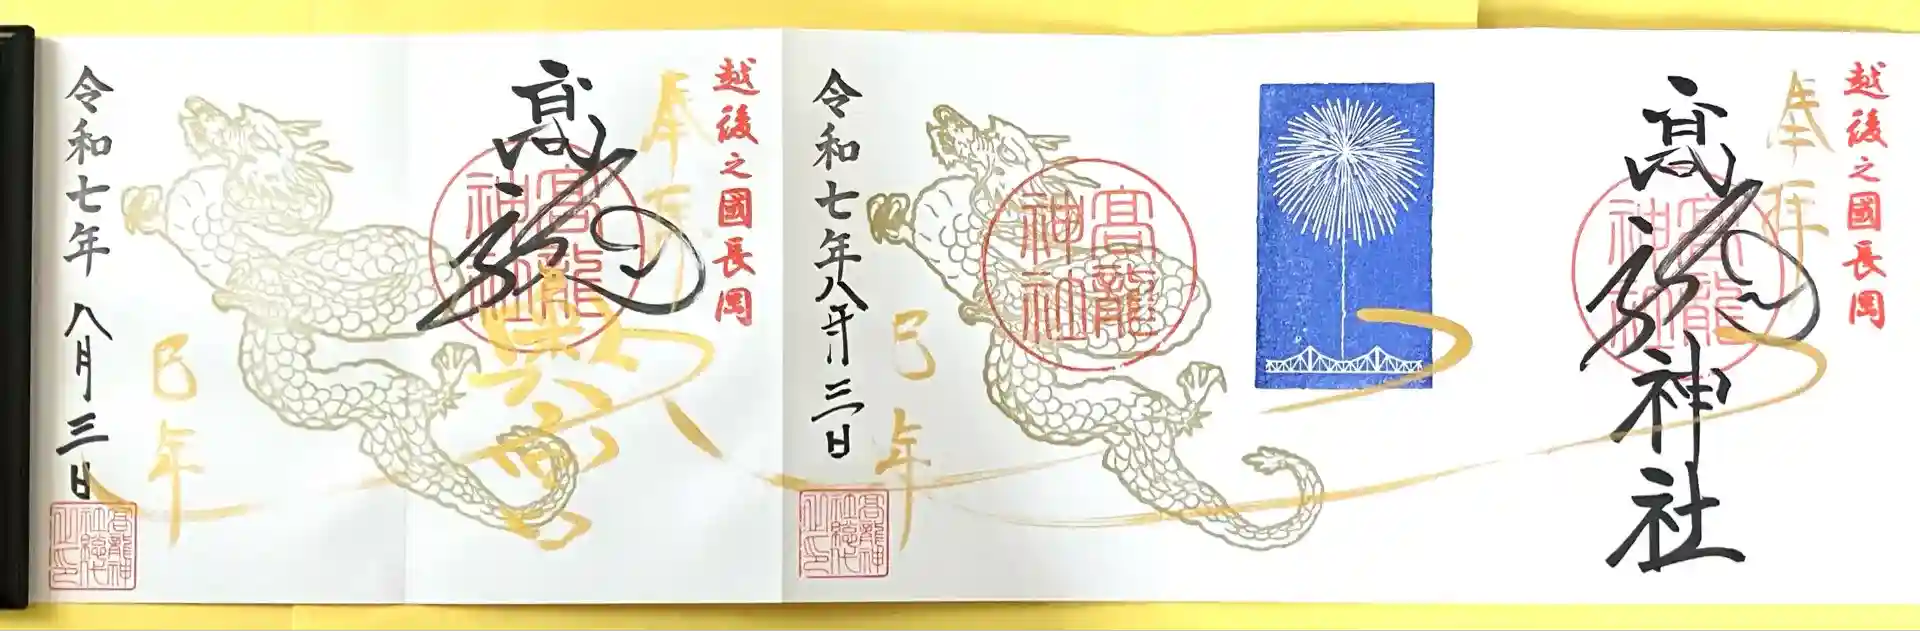 越後之國長岡
奉拝
髙龍神社
高龍神社
巳年
令和七年八月三日
高龍神社総代之印
越後之國長岡
奉拝
髙龍
高龍神社
巳年
令和七年 八月三日
高龍神社総代之印